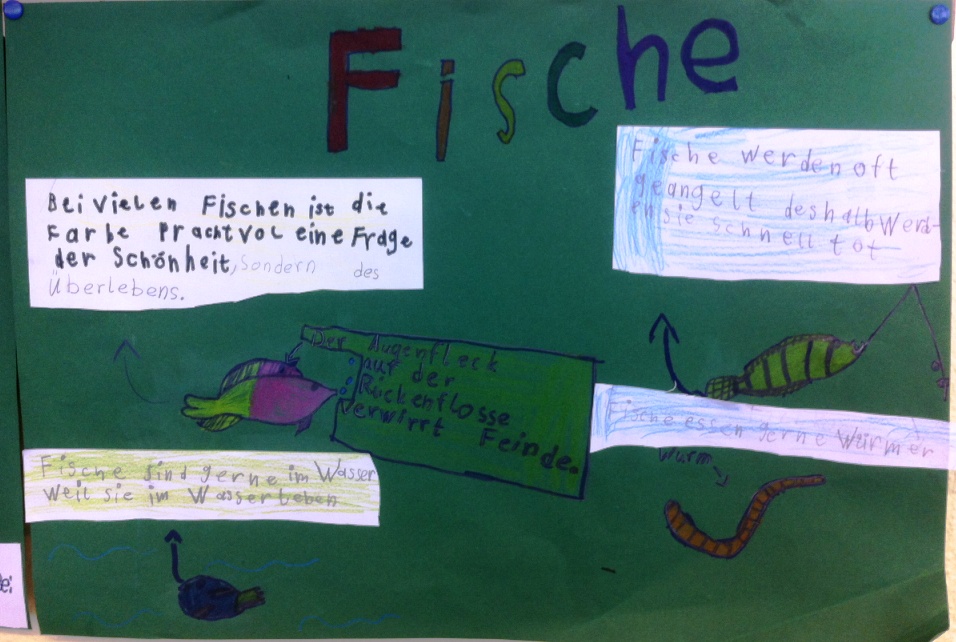 Fische
Bei vielen Fischen ist die
Farbe Prachtvol eine Frage
der Schönheit, sondern des
Überlebens.
Fische werden oft
geangelt deshalb werd-
en sie schnell tot
Der Augenfleck
auf der
Rückenflosse
verwirrt Feinde.
Fische essen gerne Würmer
Wurm
Fische sind gerne im Wasser
weil sie im Wasser leben